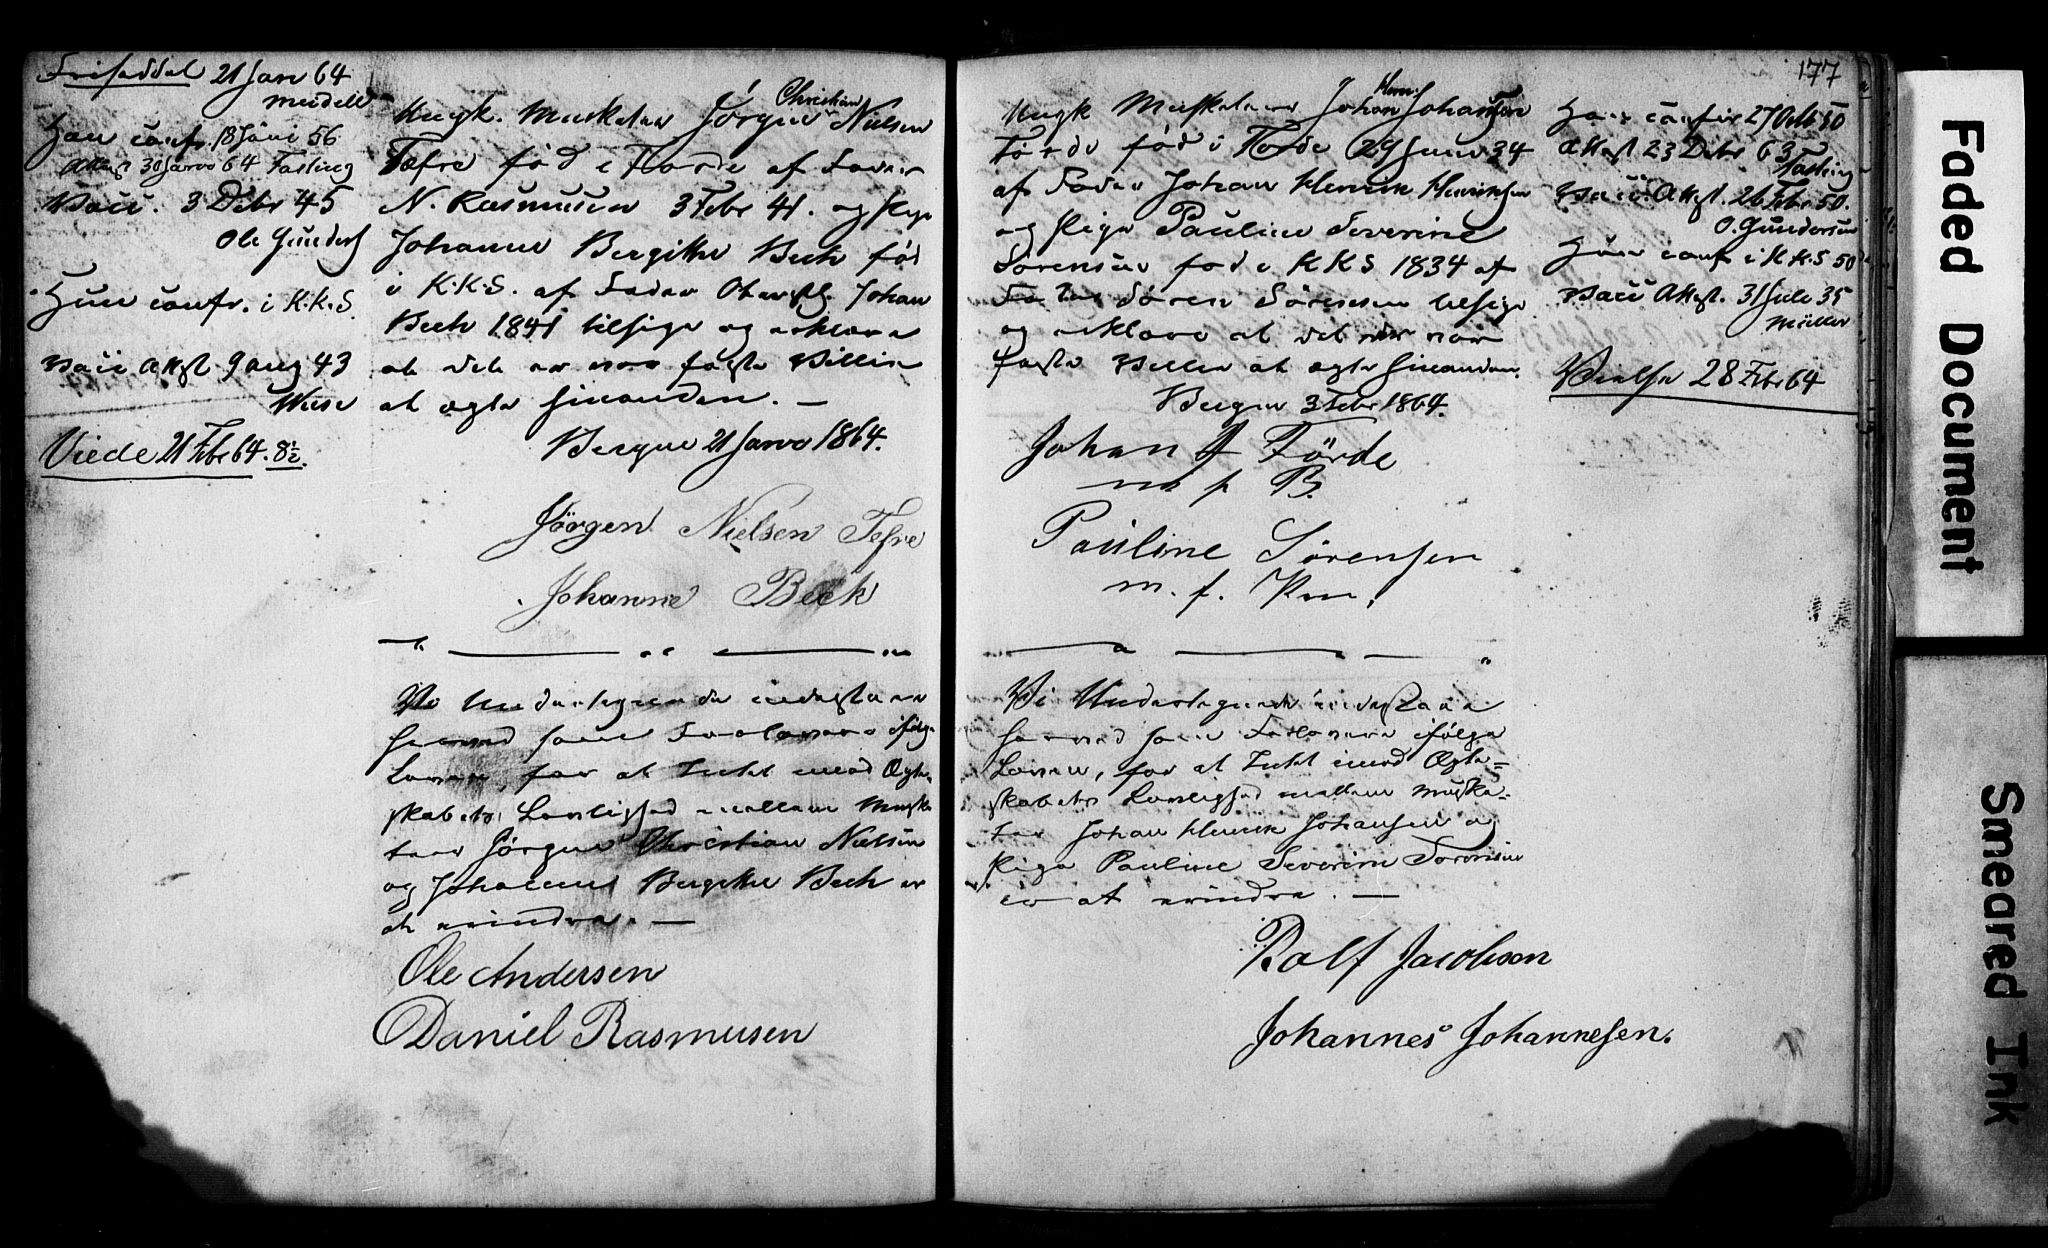 Friseddel 21 Janr 64
Han confr. 18 Juni 56
Attest 30 Janr 64 Fasting
Vacc. 3 Debr 45
Ole Gunders
Hun confr. i K.K.S.
Vacc Attst 9 Aug 43
Wiese
Viede 21 Febr 64. 8½.
Christian
Ungk. Musketeer Jørgen Nielsen
Tefre fød i Førde af Fader
N. Rasmusen 3 Febr 41. og Pige
Johanne Bergithe Beck fød
i K.K.S. af Fader Johan
Beck 1841 tilsige og erklære
at det er vor faste Villie
at ægte hinanden. —
Bergen 21 Janr 1864.
Jörgen Nielsen Tefre
Johanne Beck
Vi Undertegnede indestaae
herved som Forlovere ifølge
Loven, for at Intet imod Ægte-
skabets Lovlighed mellem Muske
teer Jörgen Christian Nielsen
og Johanne Bergithe Beck er
at erindre. —
Ole Andersen
Daniel Rasmusen
177
Henr.
Ungk Musketeer Johan Johansen
Førde fød i Førde 29 Juni 34
af Fader Johan Henrik Henriksen
og Pige Pauline Severine
Sørensen fød i K K S 1834 af
Fader Søren Sørensen tilsige
og erklære at det er vor
faste Villie at ægte hinanden.
Bergen 3 Febr 1864.
Johan J Förde
m p B.
Pauline Sørensen
m. f. Pen.
Vi Undertegnede indestaae
herved som Forlovere ifölge
Loven, for at Intet imod Ægte=
skabets Lovlighed mellem Muske=
teer Johan Henrik Johansen og
Pige Pauline Severine Sørensen
er at erindre. —
Rolf Jacobsen
Johannes Johannesen.
Han confir 27 Octb 50
Attest 23 Debr 63 Fasting
Vacc. Attst. 26 Febr 50.
O. Gundersen
Hun conf i K K S 50
Vacc Attst. 31 Juli 35
Müller
Vielse 28 Febr 64
Faded Document
Smeared Ink